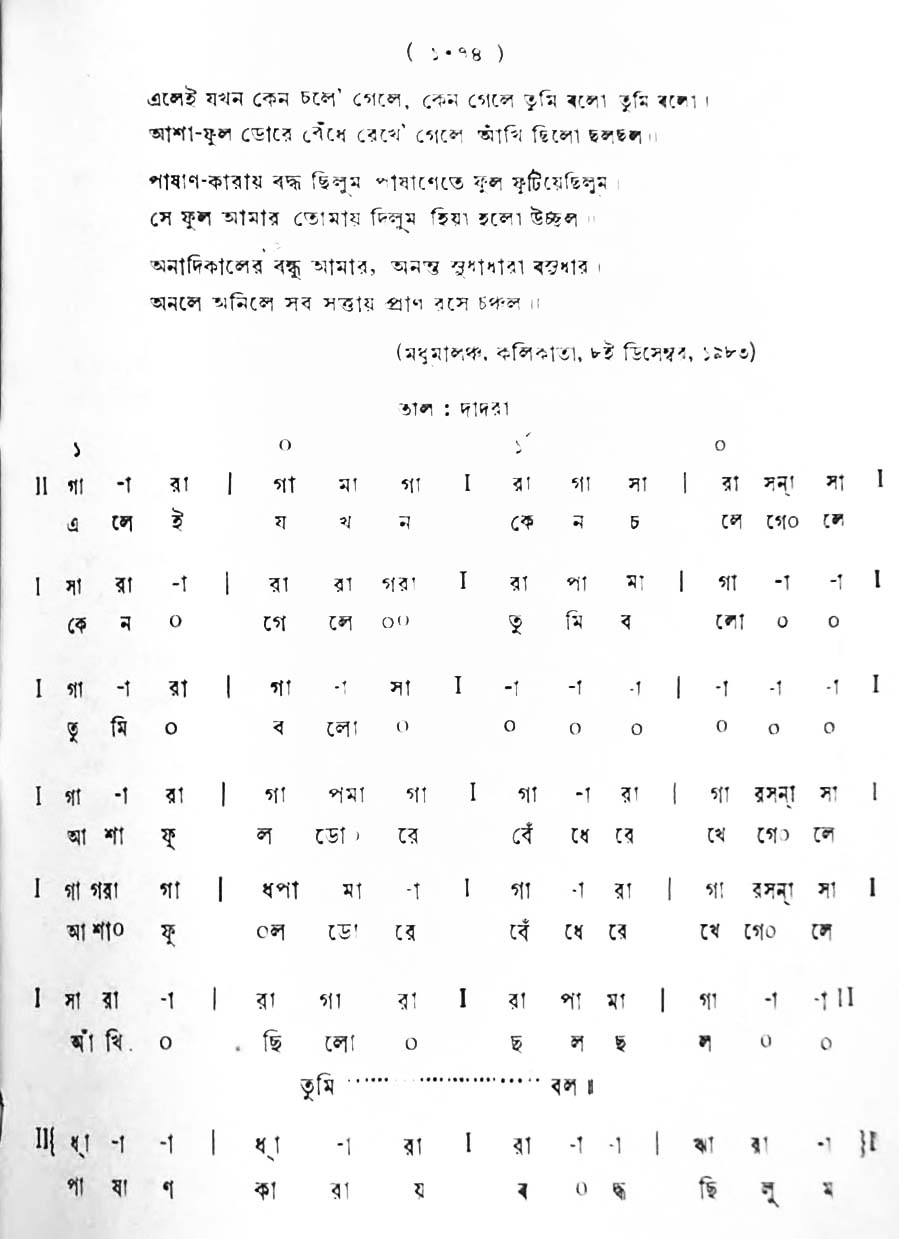 ( ১০৭৪ )
এলেই যখন কেন চলে' গেলে, কেন গেলে তুমি বলো তুমি বলো।
আশা-ফুল ডোরে বেঁধে রেখে' গেলে আঁখি ছিলো ছলছল॥
পাষাণ-কারায় বদ্ধ ছিলুম পাষাণেতে ফুল ফুটিয়েছিলুম।
সে ফুল আমার তোমায় দিলুম হিয়া হলো উচ্ছল॥
অনাদিকালের বন্ধু আমার, অনন্ত সুধাধারা বসুধার।
অনলে অনিলে সব সত্তায় প্রাণ রসে চঞ্চল॥
(মধুমালঞ্চ, কলিকাতা, ৮ই ডিসেম্বর, ১৯৮৩)
তাল : দাদরা
১ ০ ১´ ০
II গা -া রা | গা মা গা I রা গা সা | রা সন্‌া সা I
এ লে ই য খ ন কে ন চ লে গে০ লে
I সা রা -া | রা রা গরা I রা পা মা | গা -া -া I
কে ন ০ গে লে ০০ তু মি ব লো ০ ০
I গা -া রা | গা -া সা I -া -া -া | -া -া -া I
তু মি ০ ব লো ০ ০ ০ ০ ০ ০ ০
I গা -া রা | গা পমা গা I গা -া রা | গা রসন্‌া সা I
আ শা ফু ল ডো০ রে বেঁ ধে রে খে গে০ লে
I গা গরা গা | ধপা মা -া I গা -া রা | গা রসন্‌া সা I
আ শা০ ফু ০ল ডো রে বেঁ ধে রে খে গে০ লে
I সা রা -া | রা গা রা I রা পা মা | গা -া -া II
আঁ খি ০ ছি লো ০ ছ ল ছ ল ০ ০
তুমি ........................ বল॥
II{ ধ্‌া -া -া | ধ্‌া -া রা I রা -া -া | ঝা রা -া }I
পা ষা ণ কা রা য় ব ০ দ্ধ ছি লু ম